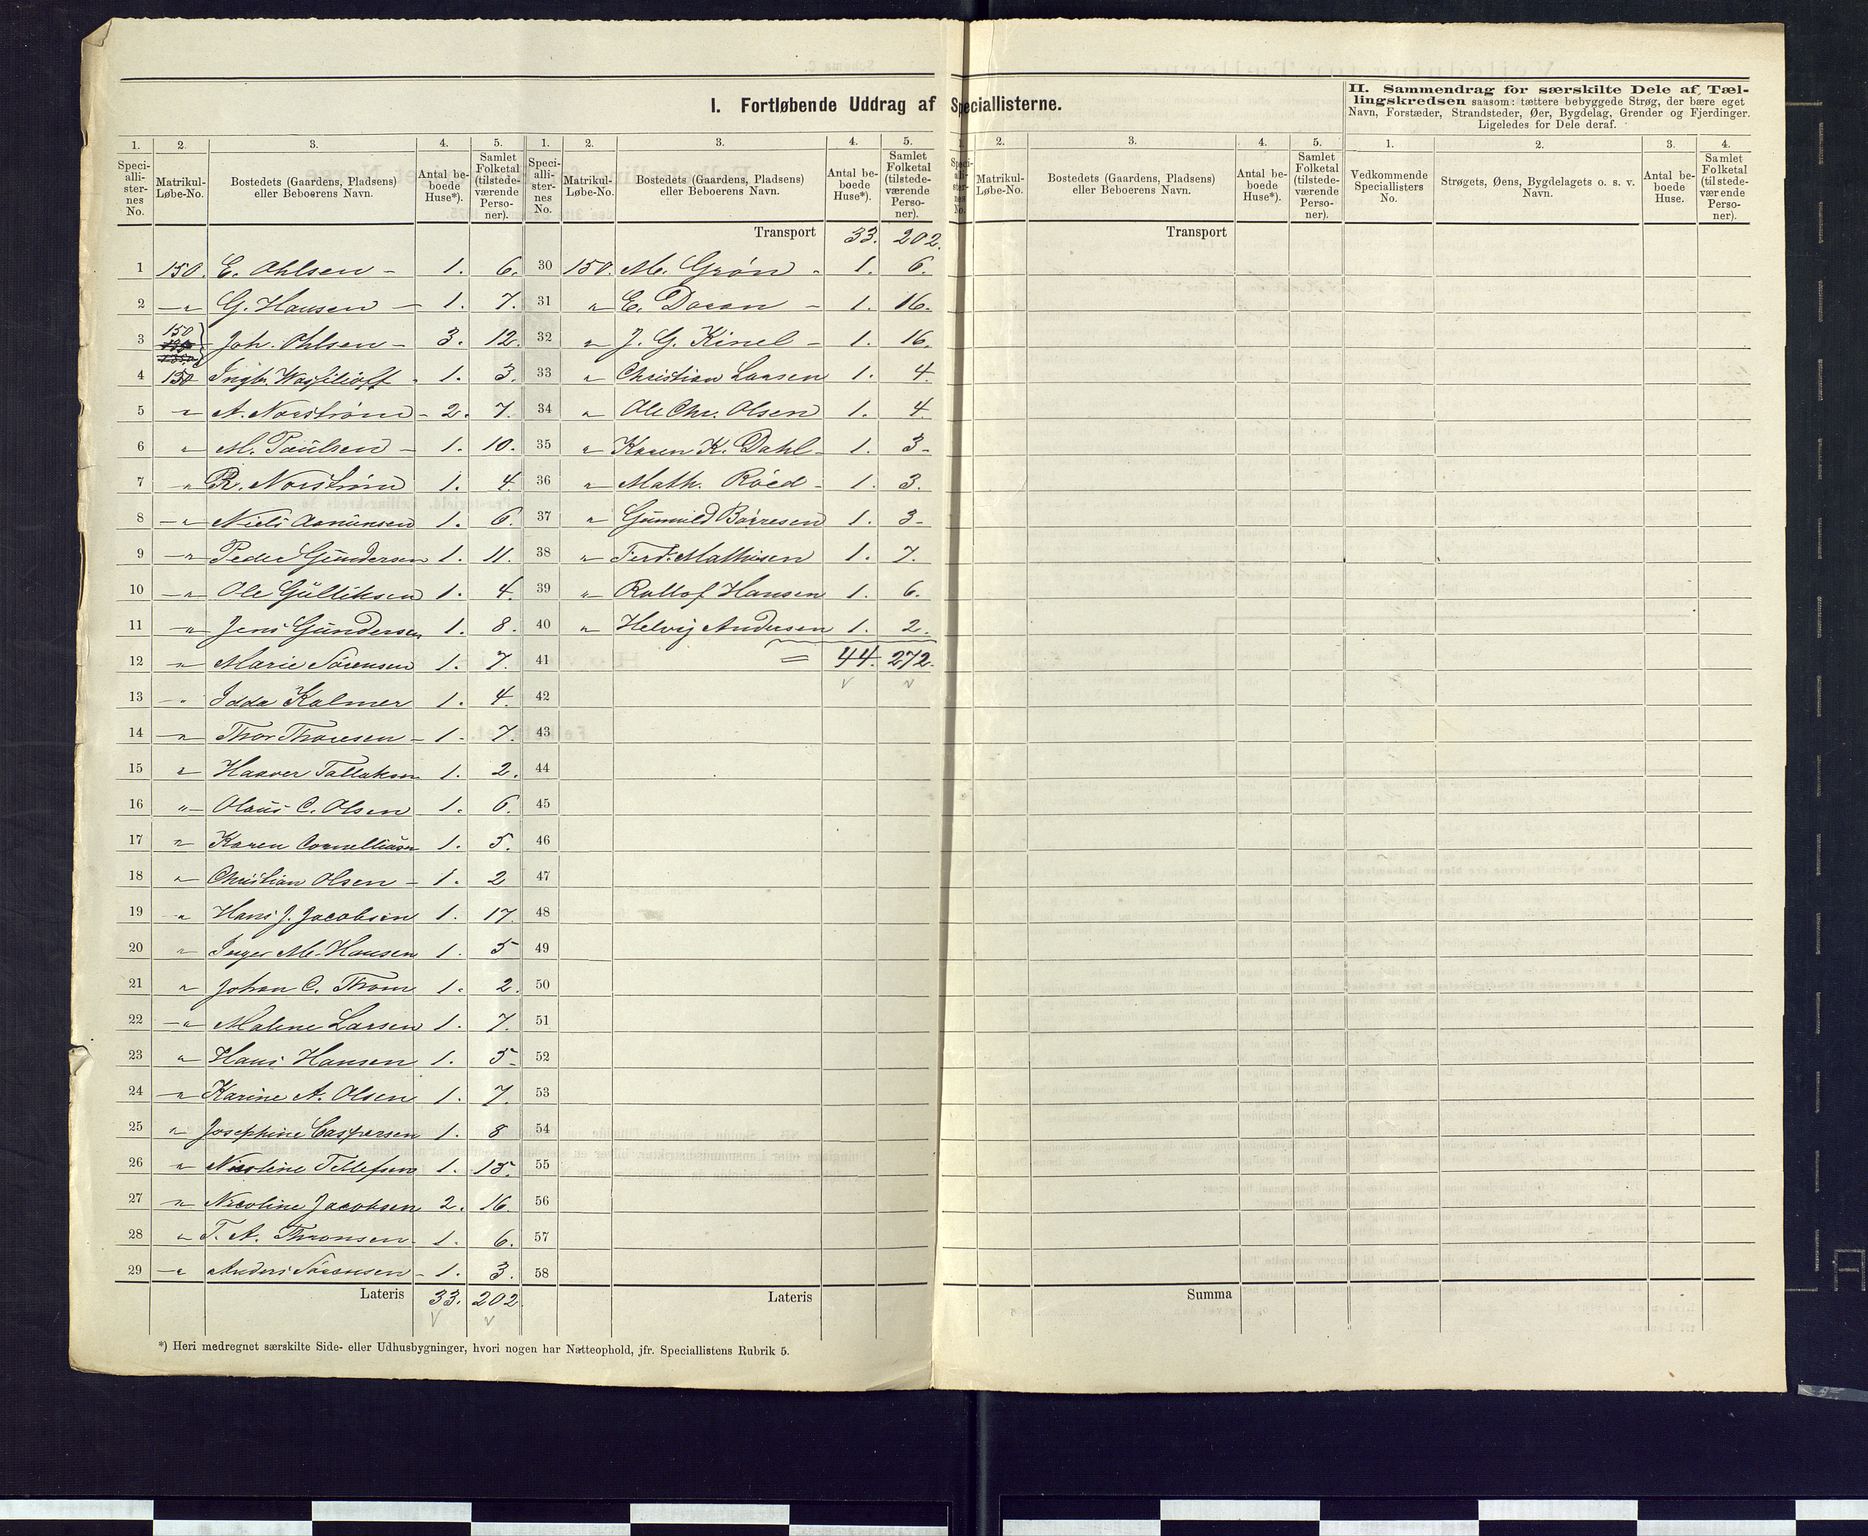 I. Fortløbende Uddrag af Speciallisterne.
II. Sammendrag for særskilte Dele af Tællingskredsen saasom: tættere bebyggede Strøg, der bære eget Navn, Forstæder, Strandsteder, Øer, Bygdelag, Grender og Fjerdinger. Ligeledes for Dele deraf.
1. 2. 3. 4. 5. 1. 2. 3. 4. 5. 1. 2. 3. 4. 5. 1. 2. 3. 4.
Speciallisternes No. Matrikul-Løbe-No. Bostedets (Gaardens, Pladsens) eller Beboerens Navn. Antal beboede Huse*). Samlet Folketal (tilstedeværende Personer).
Speciallisternes No. Matrikul-Løbe-No. Bostedets (Gaardens, Pladsens) eller Beboerens Navn. Antal beboede Huse*). Samlet Folketal (tilstedeværende Personer).
Matrikul-Løbe-No. Bostedets (Gaardens, Pladsens) eller Beboerens Navn. Antal beboede Huse*). Samlet Folketal (tilstedeværende Personer).
Vedkommende Speciallisters No. Strøgets, Øens, Bygdelagets o. s. v. Navn. Antal beboede Huse. Samlet Folketal (tilstedeværende Personer).
1 150. E. Ohlsen - 1. 6.
2 -"- G. Hansen - 1. 7.
3 150 Joh. Ohlsen - 3. 12.
4 150 Ingbr. Wasilioff - 1. 3.
5 " A. Norstrøm - 2. 7.
6 " M. Paulsen - 1. 10.
7 " R. Norstrøm 1. 4.
8 -"- Niels Asmunsen 1. 6.
9 -"- Peder Gundersen 1. 11.
10 -"- Ole Gulliksen 1. 4.
11 " Jens Gundersen 1. 8.
12 " Marie Sørensen 1. 7.
13 " Idda Kalmer 1. 4.
14 " Thor Thoresen - 1. 7.
15 " Haaver Tallaksen 1. 2.
16 " Olaus C. Olsen 1. 6.
17 " Karen Corneliusen 1. 5.
18 " Christian Olsen - 1. 2
19 " Hans J. Jacobsen 1. 17.
20 " Inger M. Hansen 1. 5
21 " Johan C. Thom 1. 2.
22 -"- Malene Larsen 1. 7.
23 " Hans Hansen 1. 5-
24 " Karine A. Olsen 1. 7.
25 " Josephine Caspersen 1. 8
26 " Nicoline Tellefsen 1. 15.
27 " Nicoline Jacobsen 2. 16.
28 " T. A. Thronsen 1. 6.
29 -"- Anders Sørensen - 1. 3.
Lateris 33. 202.
Transport 33. 202.
30 150. M. Grøn - 1. 6.
31 " E. Doran - 1. 16.
32 " J. G. Kinel - 1. 16.
33 " Christian Larsen 1. 4.
34 " Ole Chr. Olsen 1. 4.
35 " Karen K. Dahl - 1. 3-
36 " Math. Röed - 1. 3.
37 " Gunnild Börresen 1. 3-
38 " Ferd. Mathisen 1. 7.
39 " Rollof Hansen 1. 6.
40 " Helvig Andersen 1. 2.
41 = 44. 272.
42
43
44
45
46
47
48
49
50
51
52
53
54
55
56
57
58
Lateris
Transport
Summa
*) Heri medregnet særskilte Side- eller Udhusbygninger, hvori nogen har Natteophold, jfr. Speciallistens Rubrik 5.